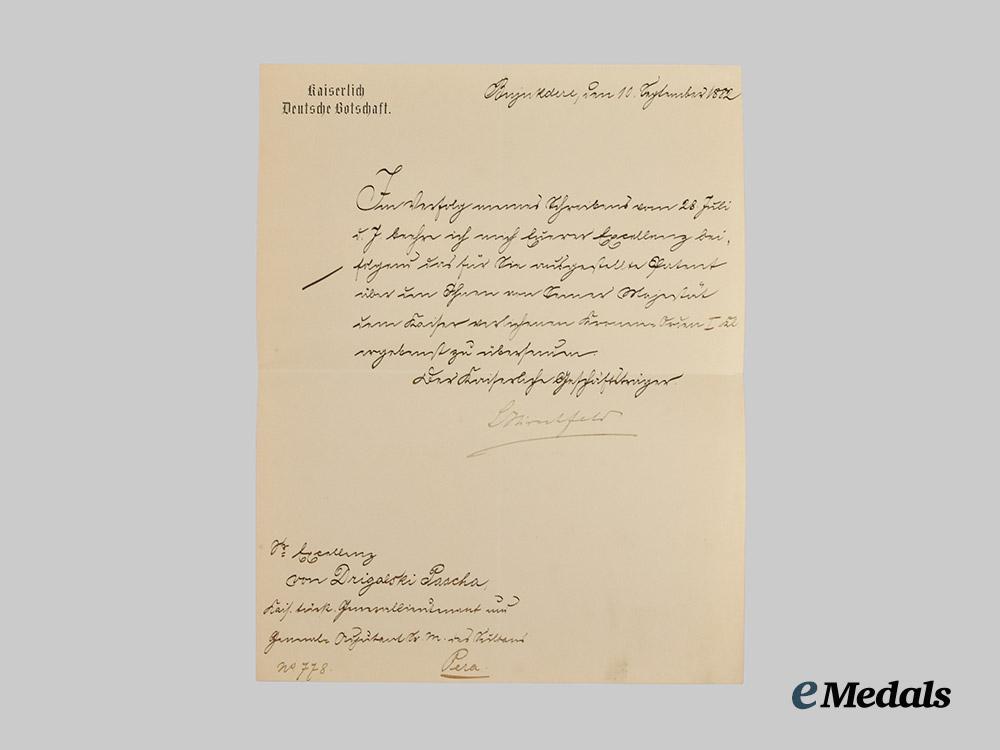 Kaiserlich
Deutsche Botschaft.
Bujukdere, den 10. September 1882
Im Verfolg meines Schreibens vom 28. Juli
d. J. beehre ich mich Euerer Excellenz bei-
folgend das für Sie ausgestellte Patent
über den Ihnen von Seiner Majestät
dem Kaiser verliehenen Kronen-Orden II Kl
ergebenst zu übersenden.
Der Kaiserliche Geschäftsträger
Hirschfeld
Sr Excellenz
von Drigalski Pascha,
Kais. türk. Generallieutenant und
General-Adjutant Sr. M. des Sultans
No 778.
Pera.
eMedals